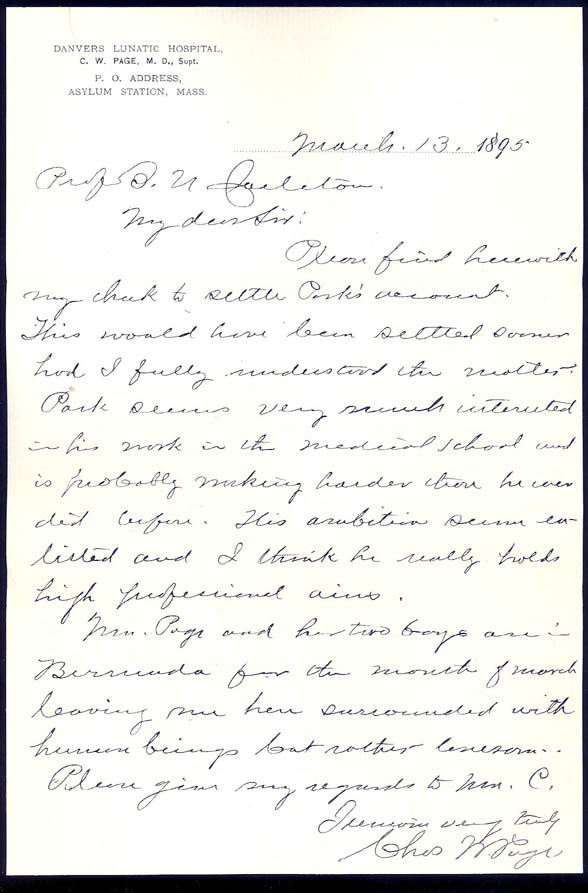 DANVERS LUNATIC HOSPITAL,
C. W. PAGE, M. D., Supt.
P. O. ADDRESS,
ASYLUM STATION, MASS.
March. 13. 1895
Prof S. N Carleton.
My dear Sir:
Please find herewith
my check to settle Park's account.
This would have been settled sooner
had I fully understood the matter.
Park seems very much interested
in his work in the medical school and
is probably working harder than he ever
did before. His ambition seems en-
listed and I think he really holds
high professional aims.
Mrs. Page and her two boys are in
Bermuda for the month of March
leaving me here surrounded with
human beings but rather lonesome.
Please give my regards to Mrs. C.
I remain very truly
Chas W. Page